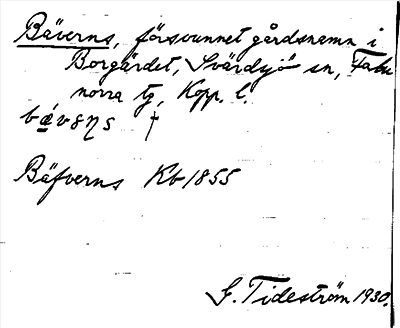 Bäverns, försvunnet gårdsnamn i
Borgärdet, Svärdsjö sn, Falu
norra tg, Kopp. l.
bǽvəɳs †
Bäfverns Kb 1855
G. Tideström 1930.